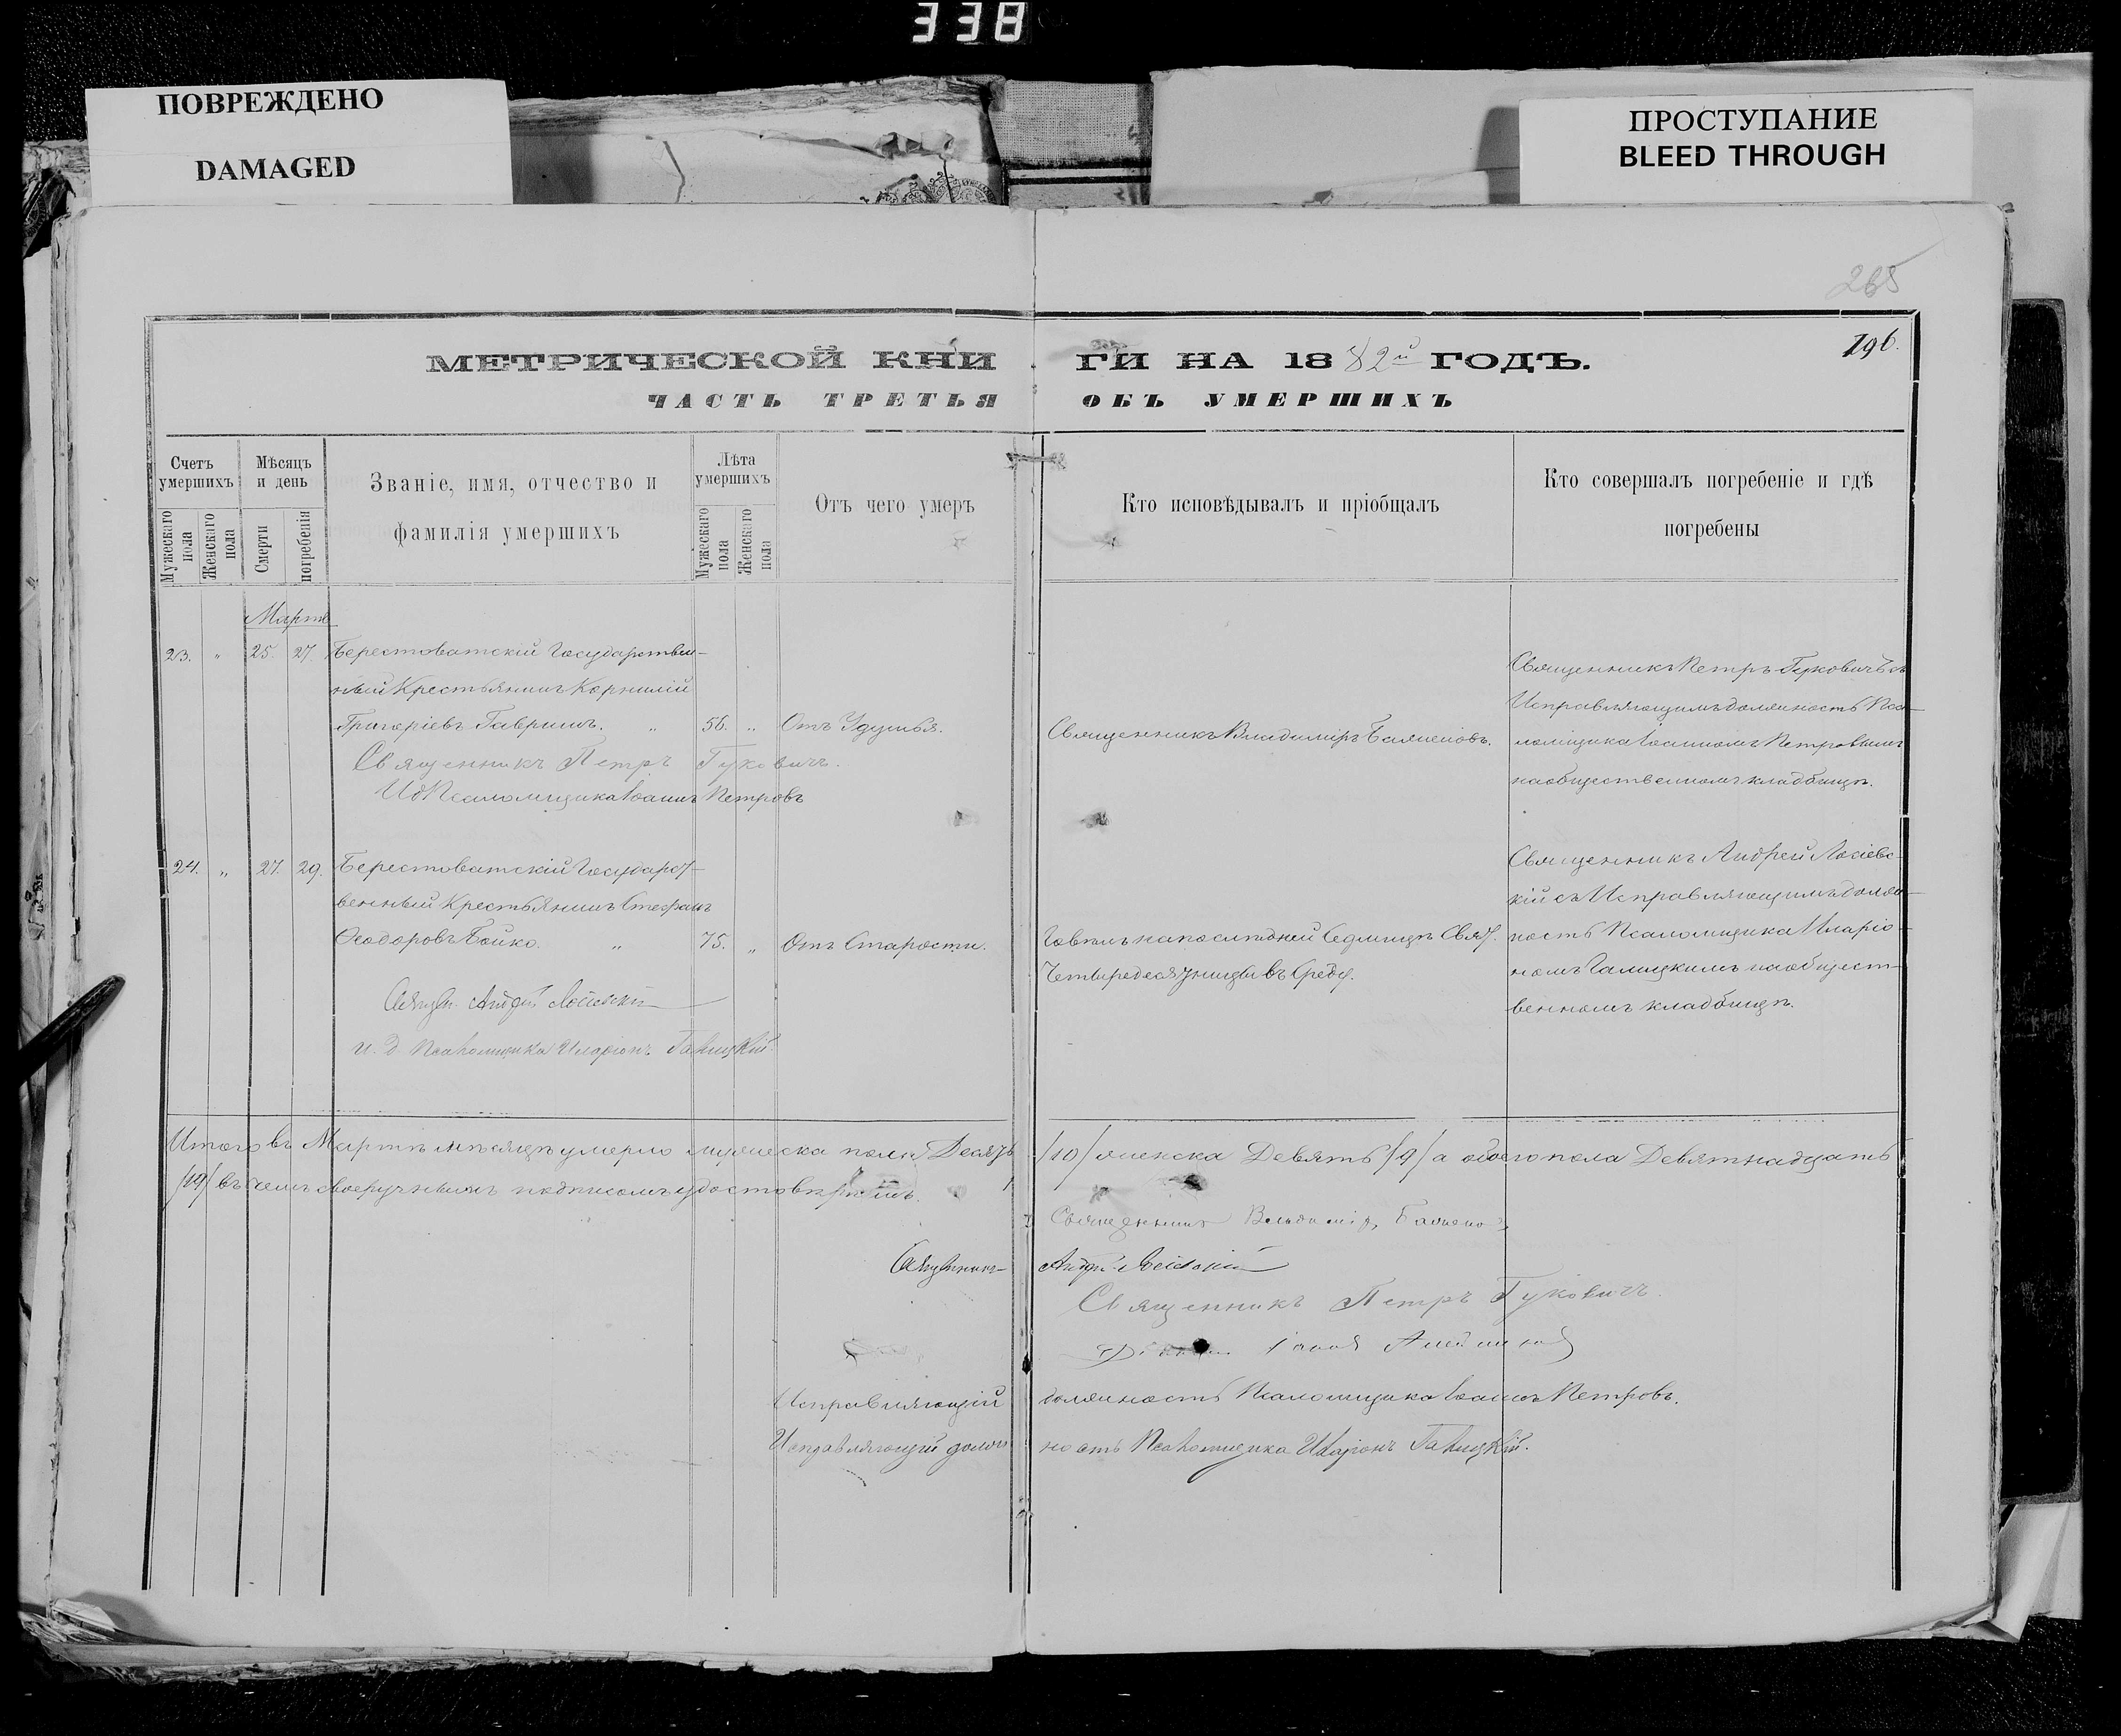 338
ПОВРЕЖДЕНО
DAMAGED
ПРОСТУПАНИЕ
BLEED THROUGH
265
МЕТРИЧЕСКОЙ КНИ ГИ НА 1882й ГОДЪ.
196.
ЧАСТЬ ТРЕТЬЯ ОБЪ УМЕРШИХЪ
Счетъ умершихъ
Мужескаго пола
Женскаго пола
Мѣсяцъ и день
Смерти
погребенія
Званіе, имя, отчество и
фамилія умершихъ
Лѣта умершихъ
Мужескаго пола
Женскаго пола
Отъ чего умеръ
Кто исповѣдывалъ и пріобщалъ
Кто совершалъ погребеніе и гдѣ
погребены
Мартъ
23. " 25. 27. Берестоватскій Государствен-
ный Крестьянинъ Корнилій
Григоріевъ Гавришъ. " 56. " Отъ Удушья.
Священникъ Владиміръ Баженовъ.
Священникъ Петръ Гуковичъ съ
Исправляющимъ должность Пса-
ломщика Іоанномъ Петровымъ
на общественномъ кладбищѣ.
Священникъ Петръ Гуковичъ.
Ид Псаломщика Іоаннъ Петровъ
24. " 27. 29. Берестоватскій Государст-
венный Крестьянинъ Стефанъ
Ѳеодоровъ Бойко. " 75. " Отъ Старости.
Говѣлъ на послѣдней Седмицѣ Свят.
Четыредесятницы въ Среду.
Священникъ Андрей Лосіевс-
кій съ Исправляющимъ долж-
ность Псаломщика Иларіо-
номъ Галицкимъ на общест-
венномъ кладбищѣ.
Священ. Андрей Лосіевскій
и. д. Псаломщика Иларіонъ Галицкій.
Итого въ Мартѣ мѣсяцѣ умерло мужеска пола Десять /10/ женска Девять /9/ а обоего пола Девятнадцать
/19/ въ чемъ своеручнымъ подписомъ удостовѣряемъ.
Священникъ Владиміръ Баженовъ
Священникъ Андрей Лосіевскій
Священникъ Петръ Гуковичъ.
Исправляющій должность Псаломщика Іоаннъ Петровъ.
Исправляющій должность Псаломщика Иларіонъ Галицкій.